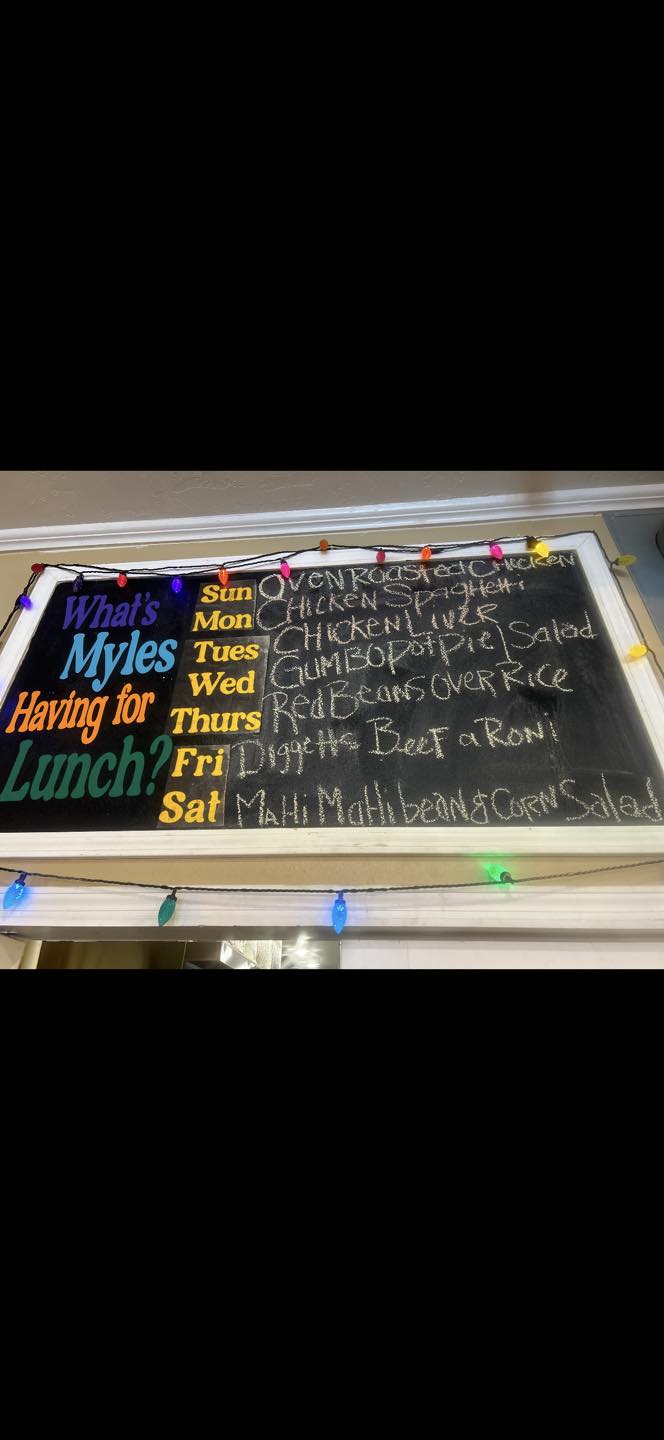 What's
Myles
Having for
Lunch?
Sun OVEN Roasted CHicKEN
Mon CHicKEN SpagHetti
Tues CHICKEN LIVER
Wed GUMBO pot pie/Salad
Thurs Red Beans OVER Rice
Fri BeeF a RONI
Sat MaHi MaHi bean & CORN Salad